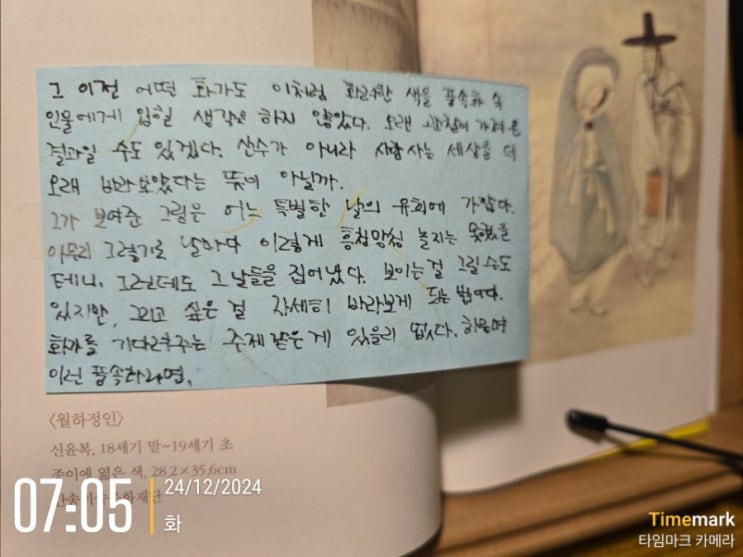 그 이전 어떤 화가도 이처럼 화려한 색을 풍속화 속
인물에게 입힐 생각은 하지 않았다. 오랜 관찰이 가져온
결과일 수도 있겠다. 산수가 아니라 사람 사는 세상을 더
오래 바라보았다는 뜻이 아닐까.
그가 보여준 그림은 어느 특별한 날의 유희에 가깝다.
아무리 그렇기로 날마다 이렇게 흥청망청 놀지는 못했을
테니. 그런데도 그 날들을 집어냈다. 보이는 걸 그릴 수도
있지만, 그리고 싶은 걸 자세히 바라보게 되는 법이다.
화가를 기다려주는 주제 같은 게 있을리 없다. 하물며
이런 풍속화라면.
<월하정인>
신윤복, 18세기 말~19세기 초
종이에 엷은 색, 28.2×35.6cm
07:05
24/12/2024
화
Timemark
타임마크 카메라